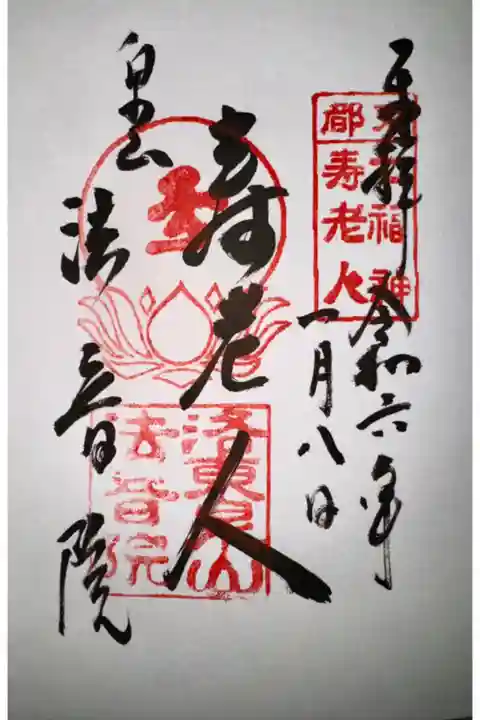 奉拝
令和六年
一月八日
七福神
都
寿老人
寿老人
泉山
法音院
洛東泉山
法音院